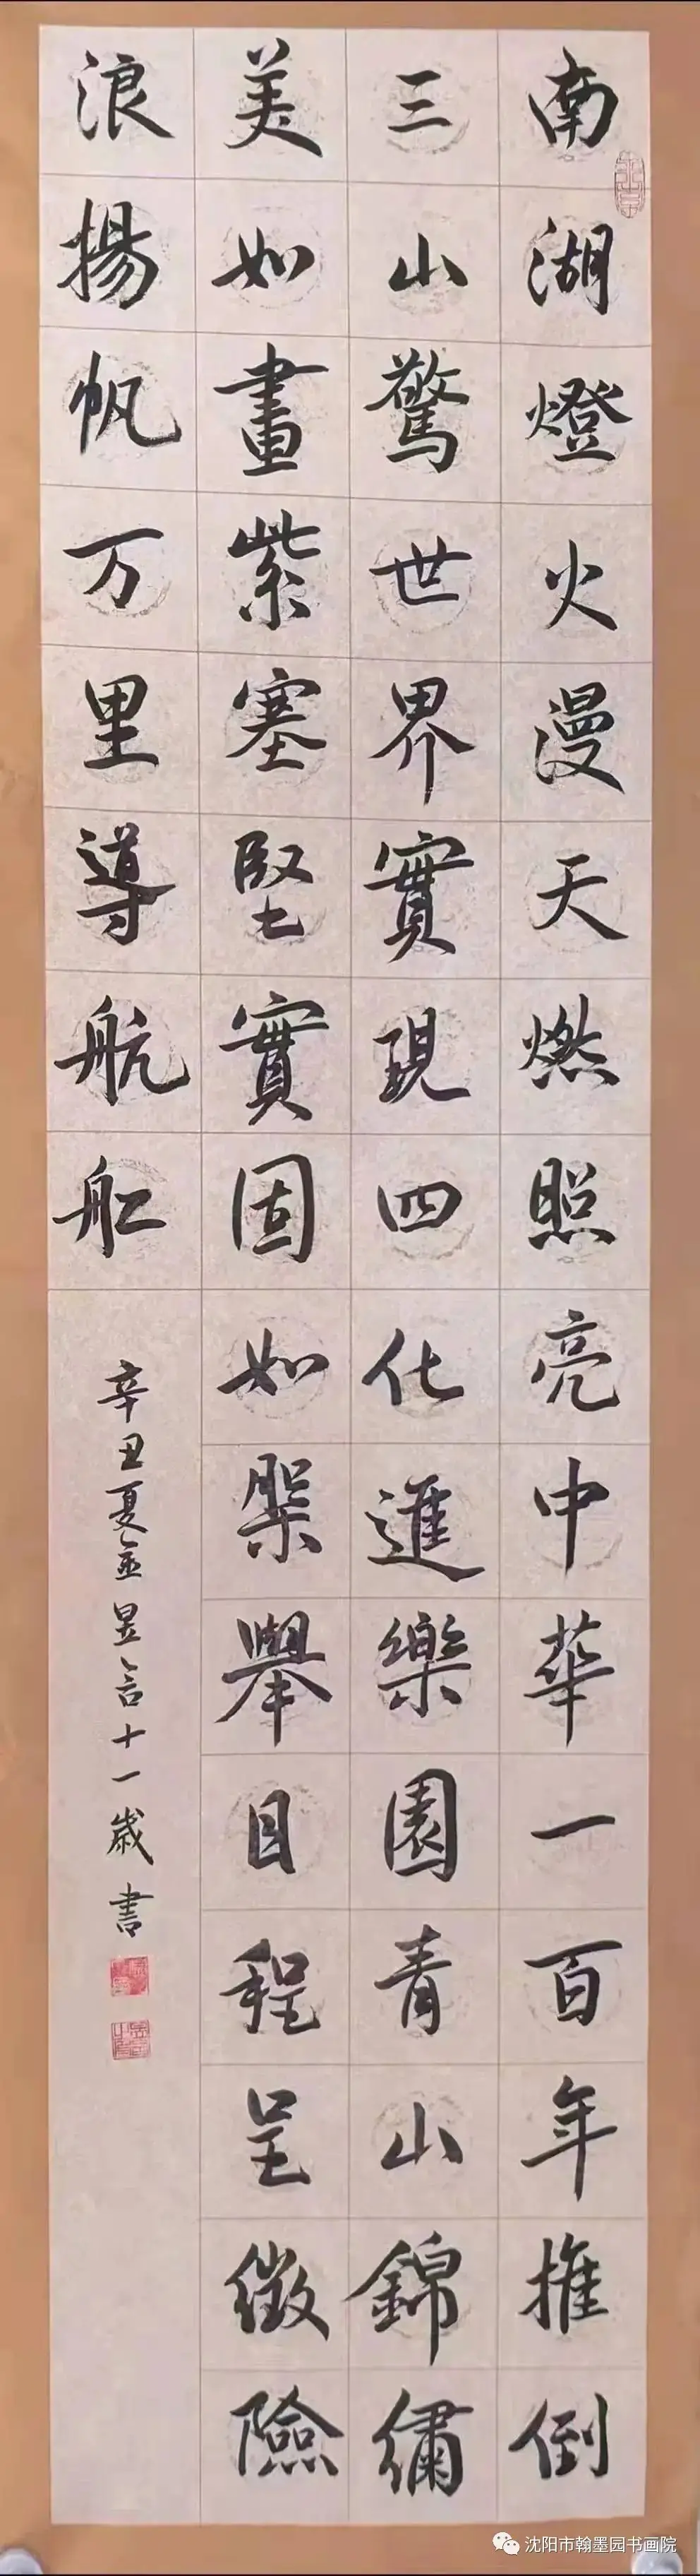 南湖燈火漫天燃照亮中華一百年推倒
三山驚世界實現四化進樂園青山錦繡
美如畫紫塞堅實固如槃舉目程呈徵險
浪揚帆万里導航舡
辛丑夏孟昱言十一歲書
沈阳市翰墨园书画院